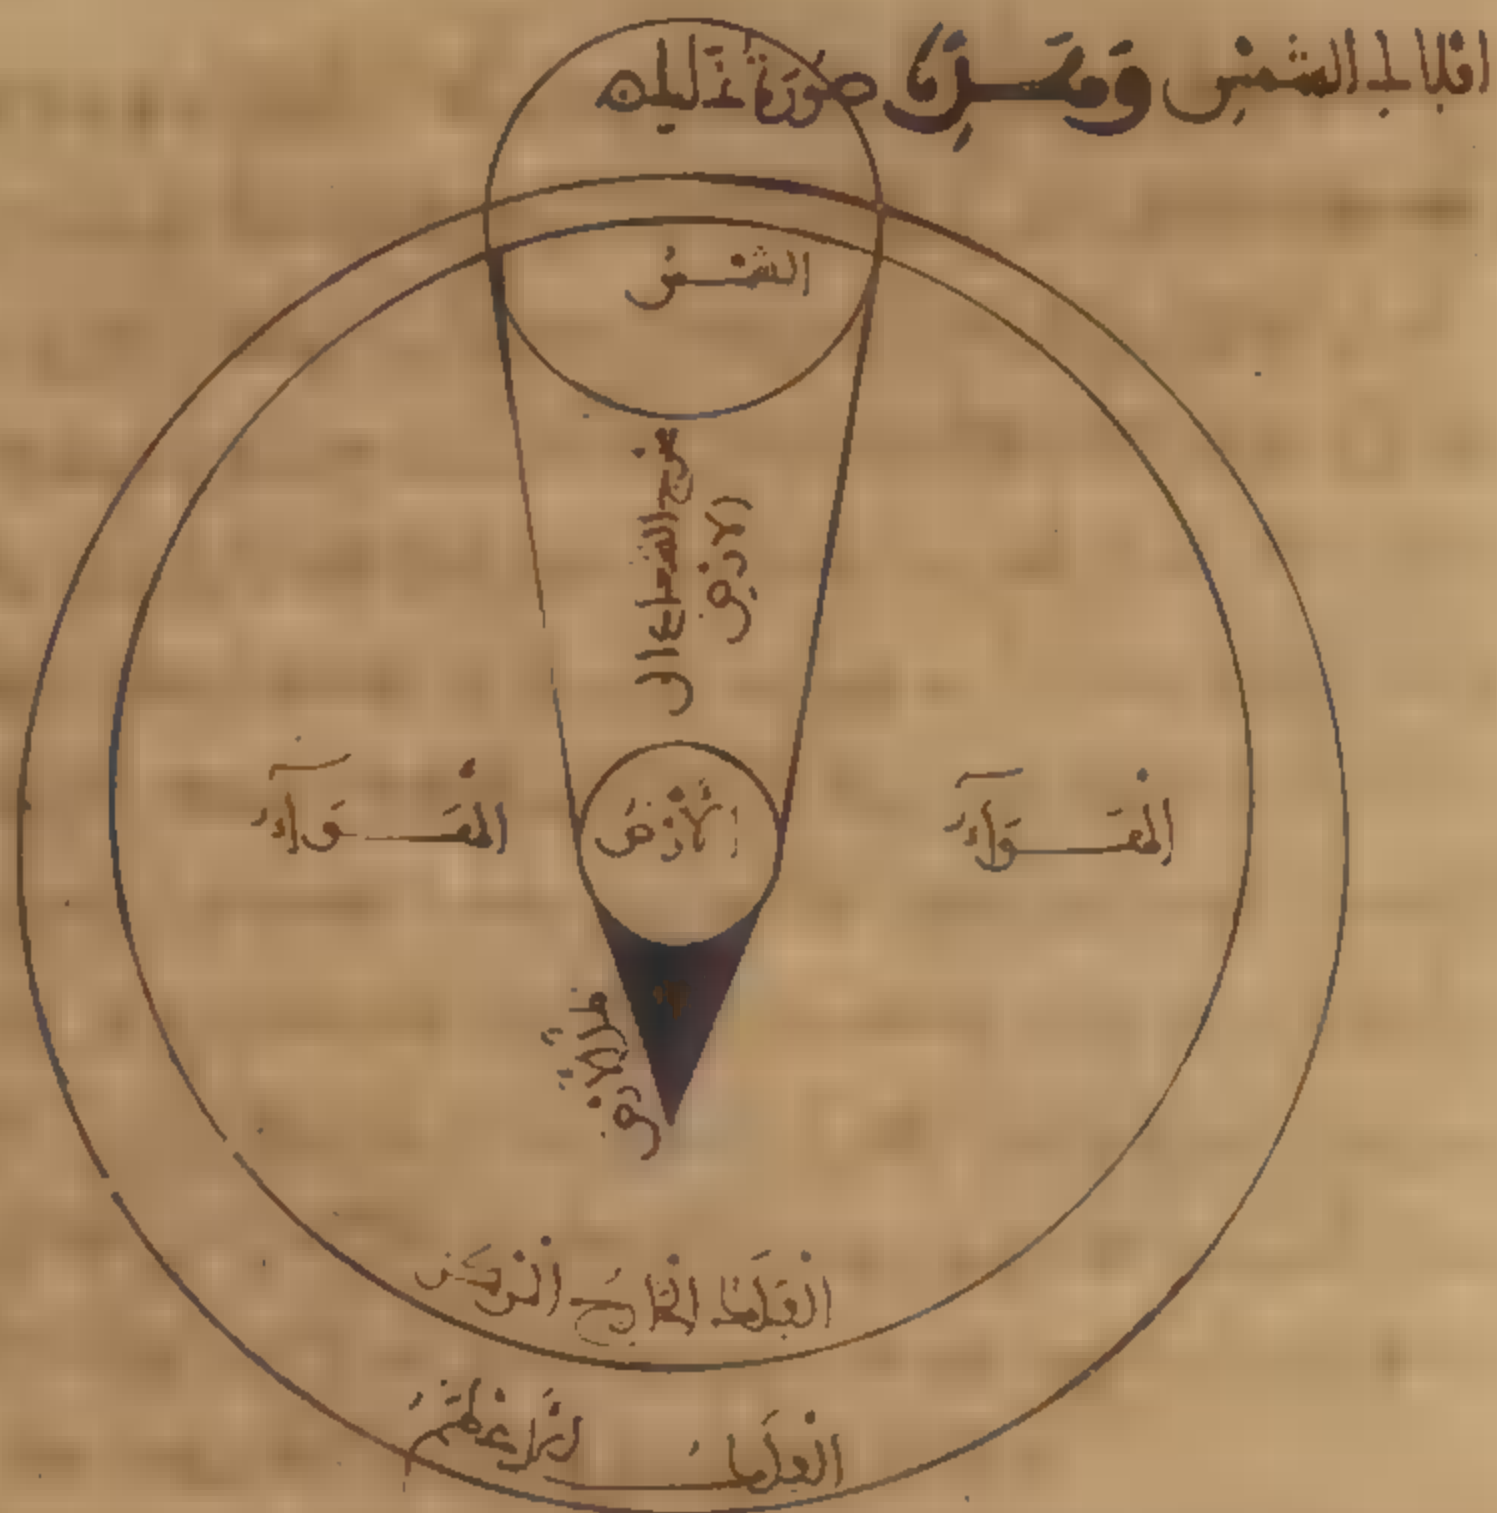 افلاك الشمس وهـــذه صورة ذلك
الشمس
مخرج الشعاع الى
الارض
الهـــواء
الأرض
الهـــواء
ظل الأرض
الفلك الخارج المركز
الفلك الأعظم